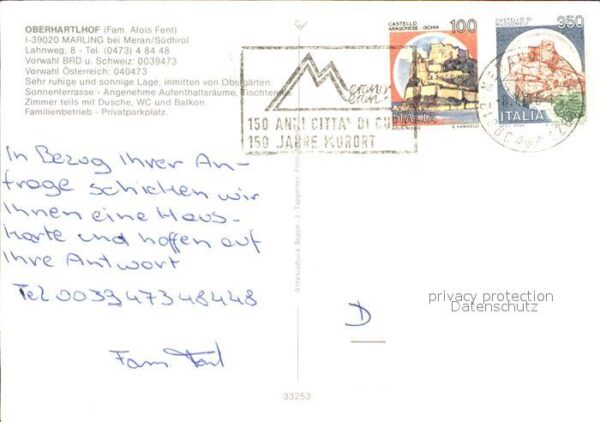 OBERHARTLHOF (Fam. Alois Fent)
I-39020 MARLING bei Meran/Südtirol
Lahnweg, 8 - Tel. (0473) 4 84 48
Vorwahl BRD u. Schweiz: 0039473
Vorwahl Österreich: 040473
Sehr ruhige und sonnige Lage, inmitten von Obstgärten
Sonnenterrasse - Angenehme Aufenthaltsräume, Tischtennis
Zimmer teils mit Dusche, WC und Balkon
Familienbetrieb - Privatparkplatz.
In Bezug Ihrer An-
frage schicken wir
Ihnen eine Haus-
karte und hoffen auf
Ihre Antwort
Tel 0039473 48448
Fam.
150 ANNI CITTA' DI CU
150 JAHRE KURORT
CASTELLO
ARAGONESE - ISCHIA
100
ITALIA
CASTELLO DI
MUSSOMELI
350
ITALIA
Athesiadruck Bozen J. Tappeiner
D
privacy protection
Datenschutz
33253